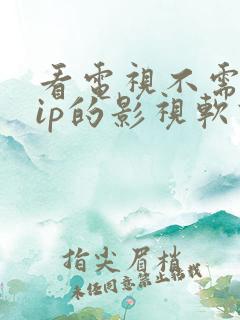 看電視不需
ip的影視軟
指尖眉梢
未经同意禁止转载